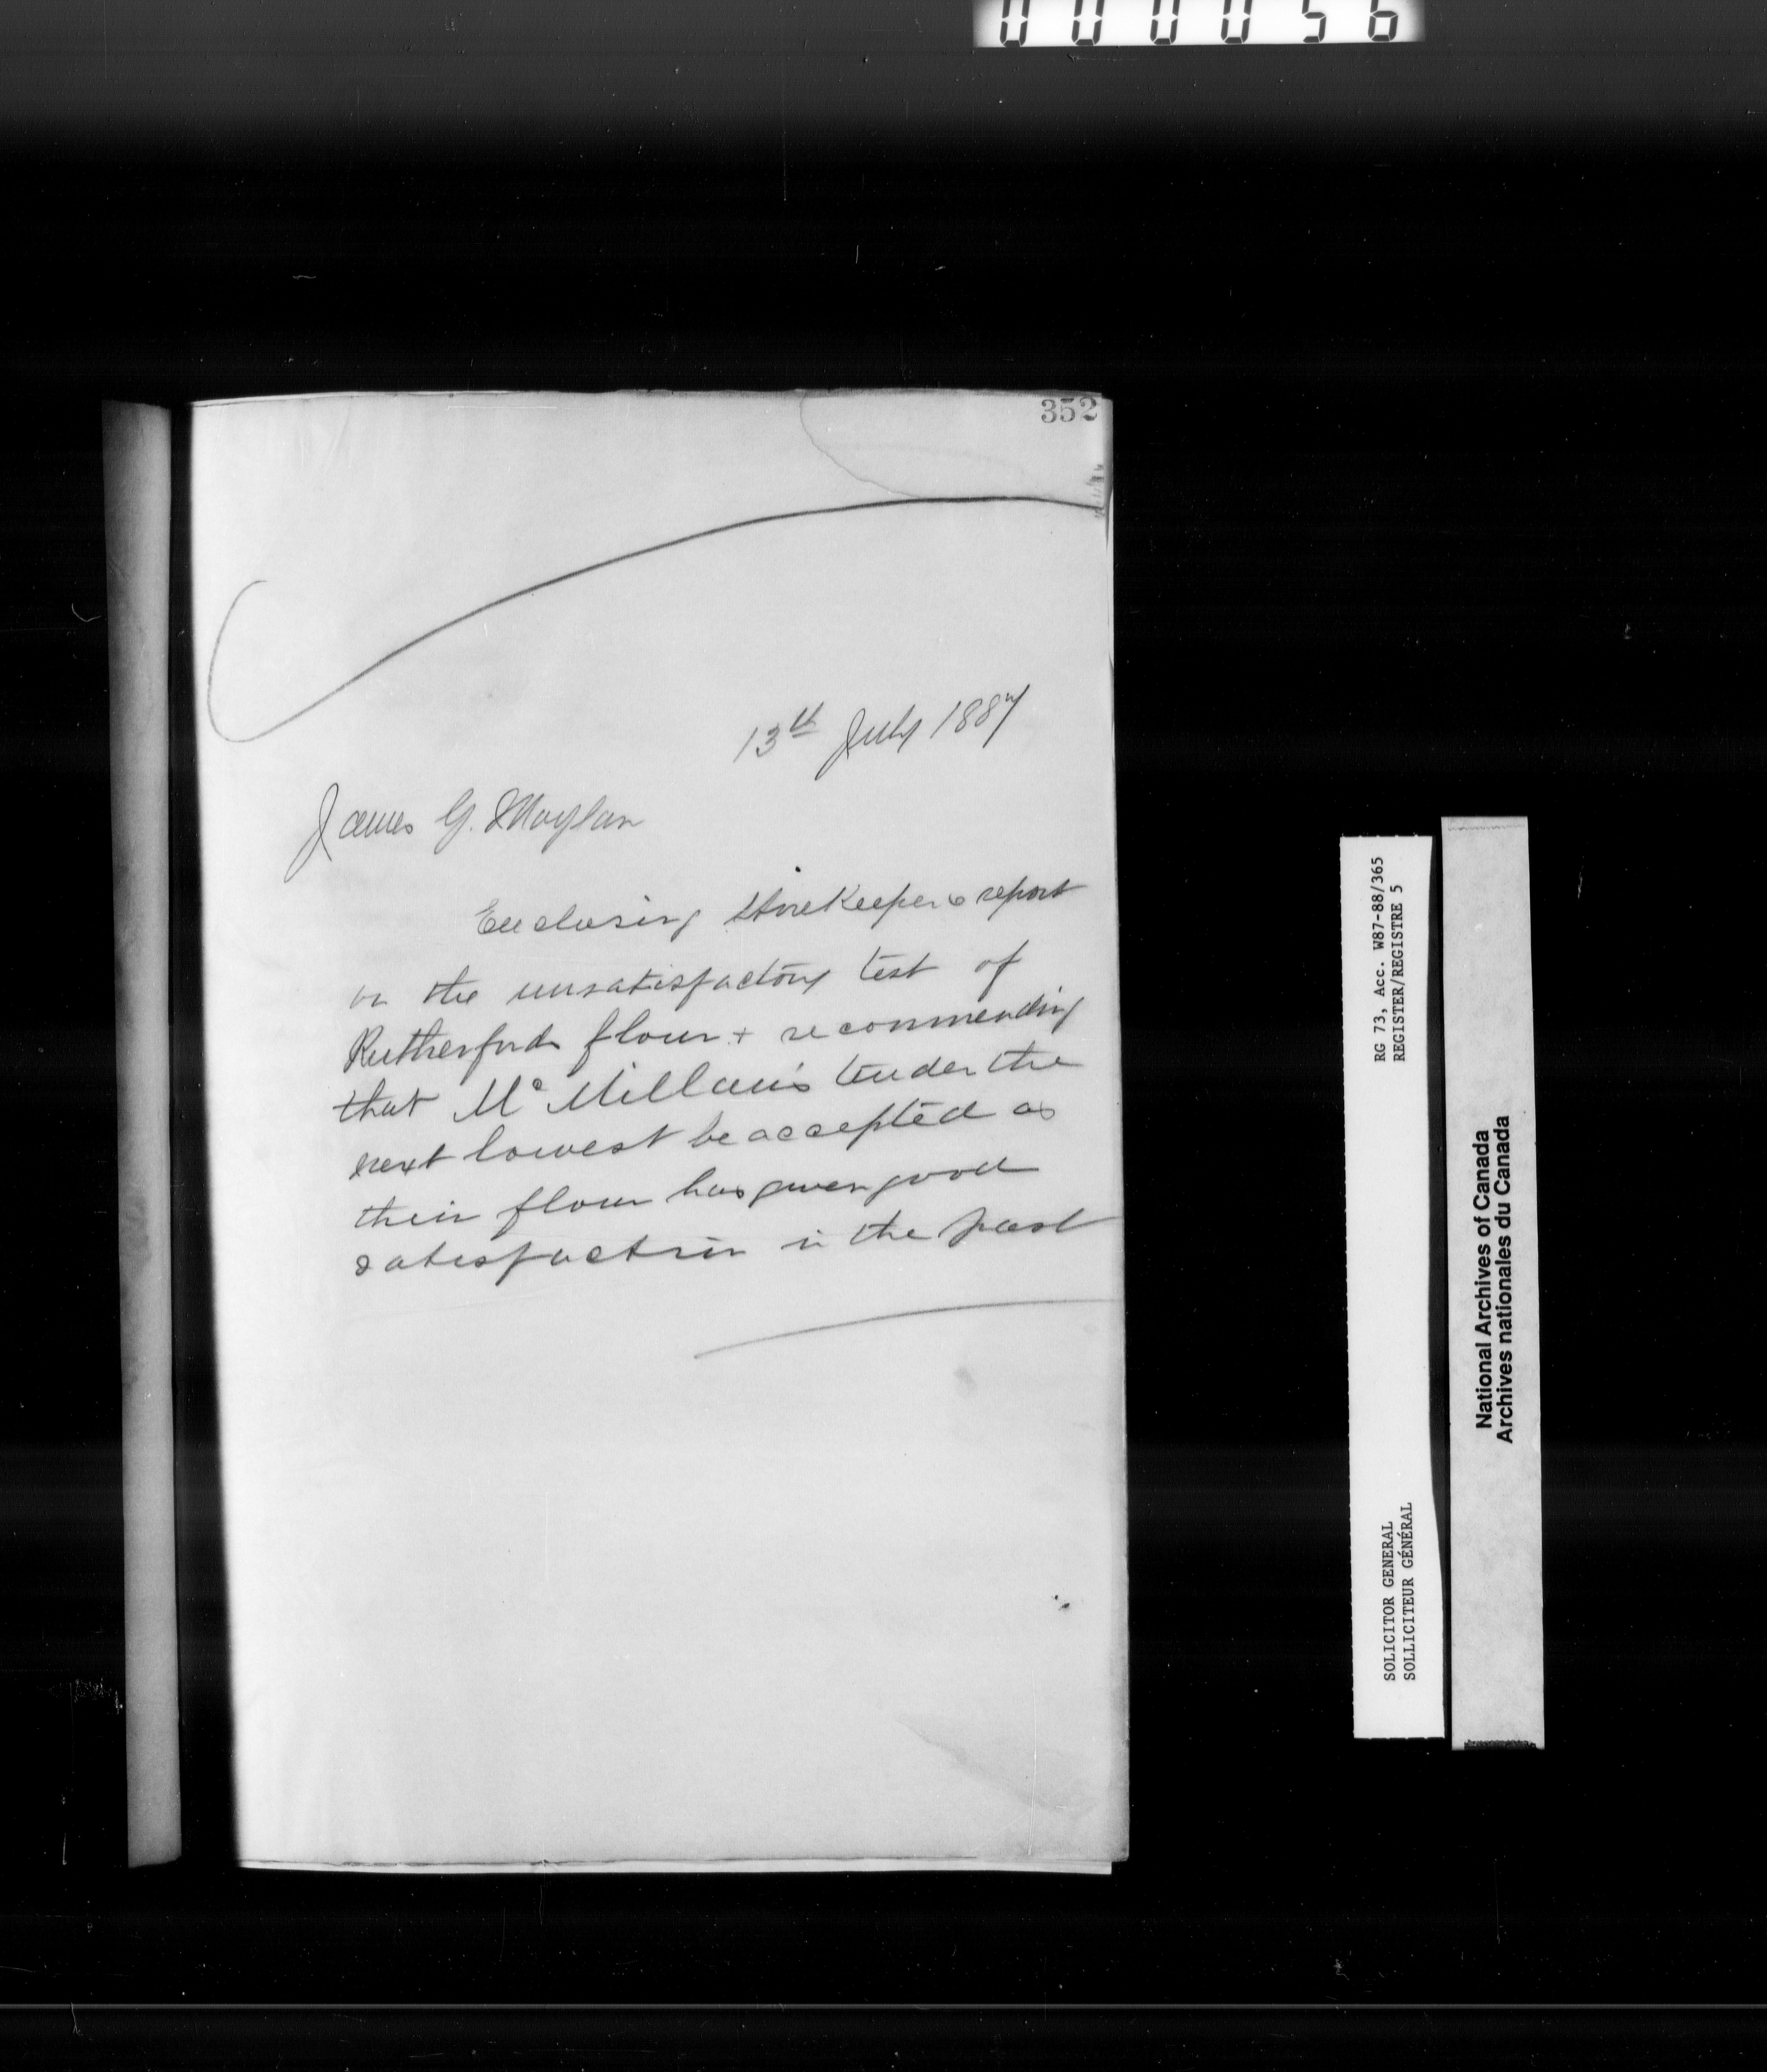 000056
352
13th July 1887
James G. Moylan
Enclosing StoreKeepers report
on the unsatisfactory test of
Rutherfords flour + recommending
that Mc Millan's tender the
next lowest be accepted as
their flour has given good
satisfaction in the past
RG 73, Acc. W87-88/365
REGISTER/REGISTRE 5
SOLICITOR GENERAL
SOLLICITEUR GÉNÉRAL
National Archives of Canada
Archives nationales du Canada